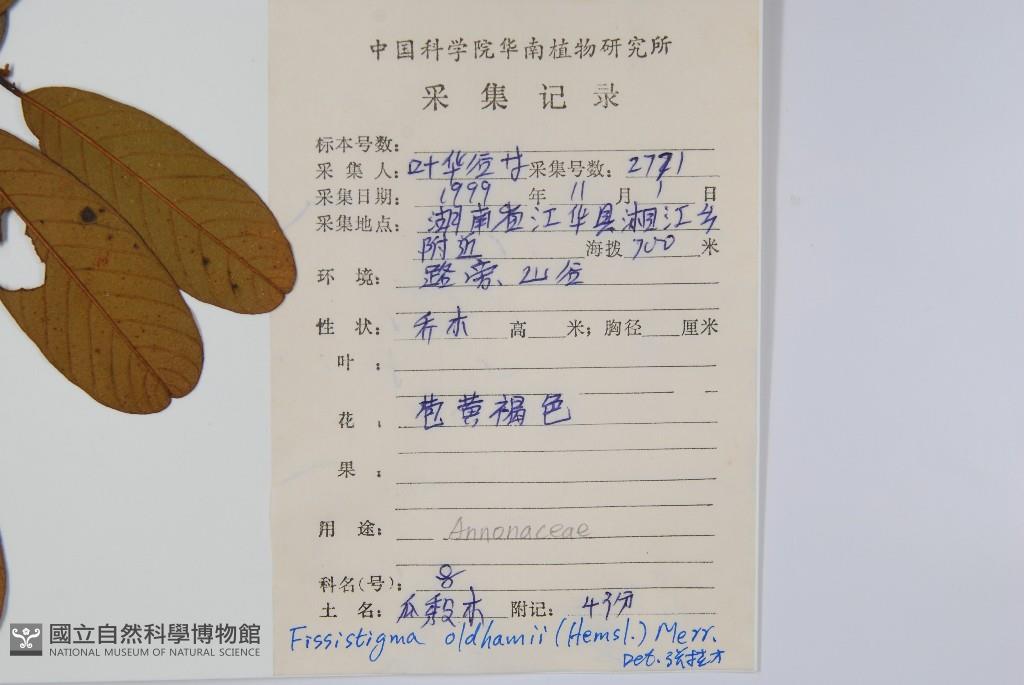 中国科学院华南植物研究所
采集记录
标本号数:
采集人: 叶华谷 采集号数: 2771
采集日期: 1999 年 11 月 1 日
采集地点: 湖南省江华县湘江乡
附近 海拨 700 米
环境: 路旁、山谷
性状: 乔木 高 米; 胸径 厘米
叶:
花: 黄褐色
果:
用途: Annonaceae
科名(号): 8
土名: 瓜 木 附记: 4分
Fissistigma oldhamii (Hemsl.) Merr.
Det. 张桂才
國立自然科學博物館
NATIONAL MUSEUM OF NATURAL SCIENCE